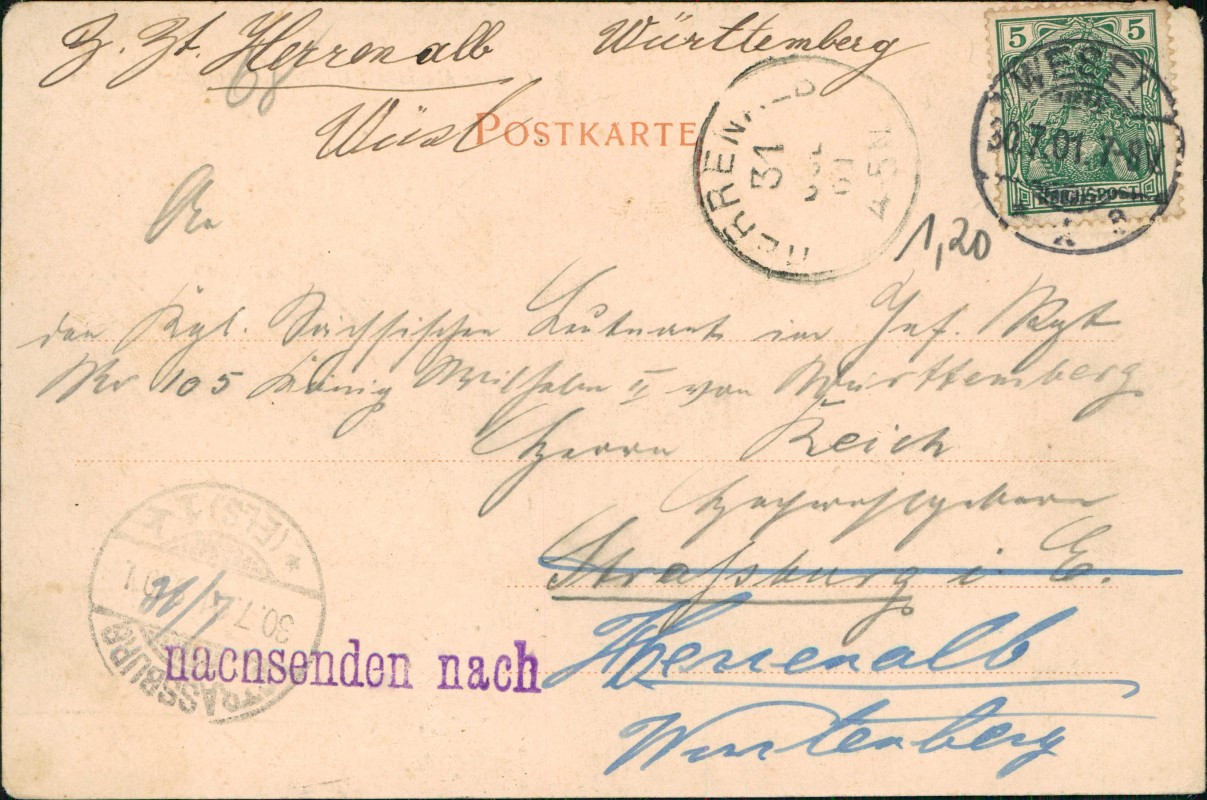 Z. Zt. Herrenalb Württemberg
Württ.
POSTKARTE
5 5
REICHSPOST
WESEL
30.7.01.7-8N
* a
HERRENALB
31
JUL
01
4-5N
1,20
68
An
den Kgl. Sächsischen Leutnant im Inf. Rgt
Nr 105 König Wilhelm II von Württemberg
Herrn Reich
Hochwohlgeboren
Strassburg i. E.
STRASSBURG
(ELS) 1 *
30.7.
nachsenden nach
Herrenalb
Wurtenberg